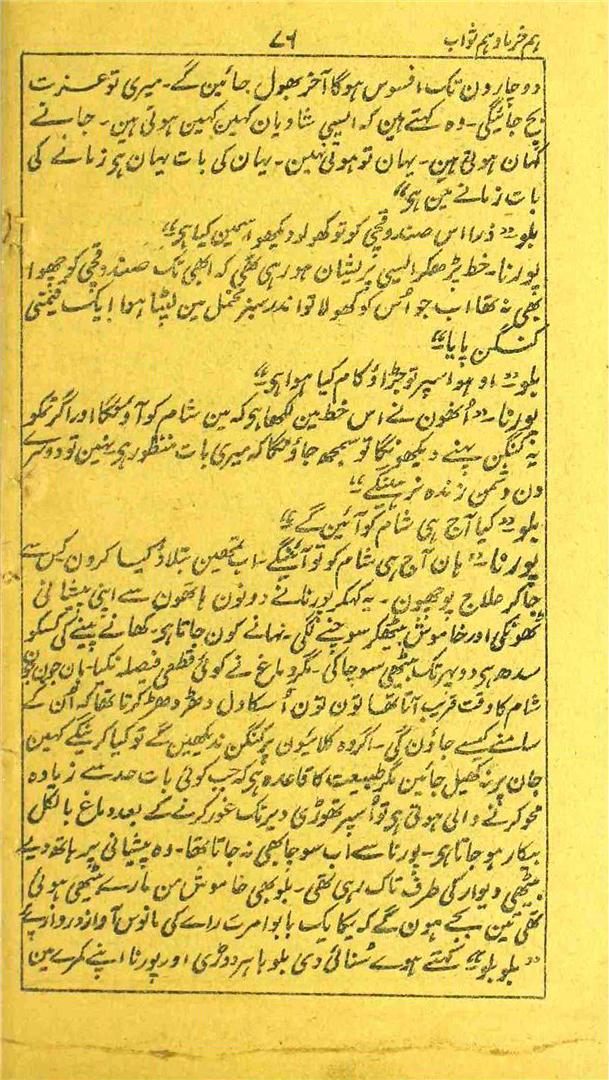 ہم خرما و ہم ثواب ۷۶
دو چار دن تک افسوس ہوگا آخر بھول جائین گے۔ میری تو عزت
بچ جائیگی۔ وہ کہتے ہین کہ ایسی شادیان کہین کہین ہوتی ہین۔ جانے
کہان ہوتی ہین۔ یہان تو ہوتی نہین۔ یہان کی بات یہان ہی زمانے کی
بات زمانے مین ہی"
بلو۔ "ذرا اس صندوقچی کو تو کھولو دیکھو اسمین کیا ہی"
پورنا۔ خط پڑھکر ایسی پریشان ہو رہی تھی کہ ابھی تک صندوقچی کو چھوا
بھی نہ تھا اب جو اُس کو کھولا تو اندر سبز مخمل مین لپٹا ہوا ایک قیمتی
کنگن پایا"
بلو۔ "او ہو اسپر تو جڑاؤ کام کیا ہوا ہی"
پورنا۔ "اُنھون نے اس خط مین لکھا ہی کہ مین شام کو آؤنگا اور اگر تمکو
یہ کنگن پہنے دیکھونگا تو سمجھ جاؤنگا کہ میری بات منظور ہی نہین تو دوسرے
دن دشمن زندہ نرہینگے"
بلو۔ "کیا آج ہی شام کو آئین گے"
پورنا۔ "ہان آج ہی شام کو تو آئینگے۔ اب تمھین بتلاؤ کیسا کرون کس سے
جاکر علاج پوچھون۔ یہ کہکر پورنا نے دونون ہاتھون سے اپنی پیشانی
ٹھونکی اور خاموش بیٹھکر سوچنے لگی۔ نہانے کون جاتا ہی۔ کھانے پینے کی کسکو
سدھ ہی دوپہر تک بیٹھی سوچا کی۔ مگر دماغ نے کوئی قطعی فیصلہ نکیا۔ ہان جون جون
شام کا وقت قریب آتا تھا تون تون اُسکا دل دھڑ دھڑ کرتا تھا کہ اُن کے
سامنے کیسے جاؤن گی۔ اگر وہ کلائیون پر کنگن ندیکھین گے تو کیا کرینگے کہین
جان پر نہ کھیل جائین مگر طبیعت کا قاعدہ ہی کہ جب کوئی بات حد سے زیادہ
محو کرنے والی ہوتی ہی تو اُسپر تھوڑی دیر تک غور کرنے کے بعد دماغ بالکل
بیکار ہو جاتا ہی۔ پورنا سے اب سوچا بھی نہ جاتا تھا۔ وہ پیشانی پر ہاتھ دیے
بیٹھی دیوار کی طرف تاک رہی تھی۔ بلو بھی خاموش من مارے بیٹھی ہوئی
تھی تین بجے ہون گے کہ یکایک بابو امرت راے کی مانوس آواز دروازہ پر
"بلو بلو" کہتے ہوے سُنائی دی بلو باہر دوڑی اور پورنا اپنے کمرے مین